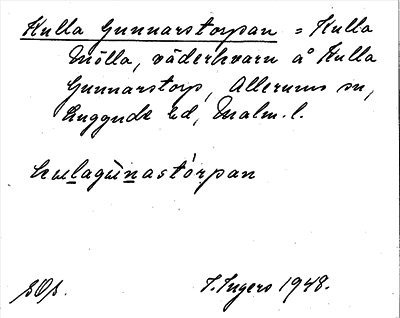 Kulla Gunnarstorpan = Kulla
Mölla, väderkvarn å Kulla
Gunnarstorp, Allerums sn,
Luggude hd, Malm. l.
kulagùnastórpan
I. Ingers 1948.